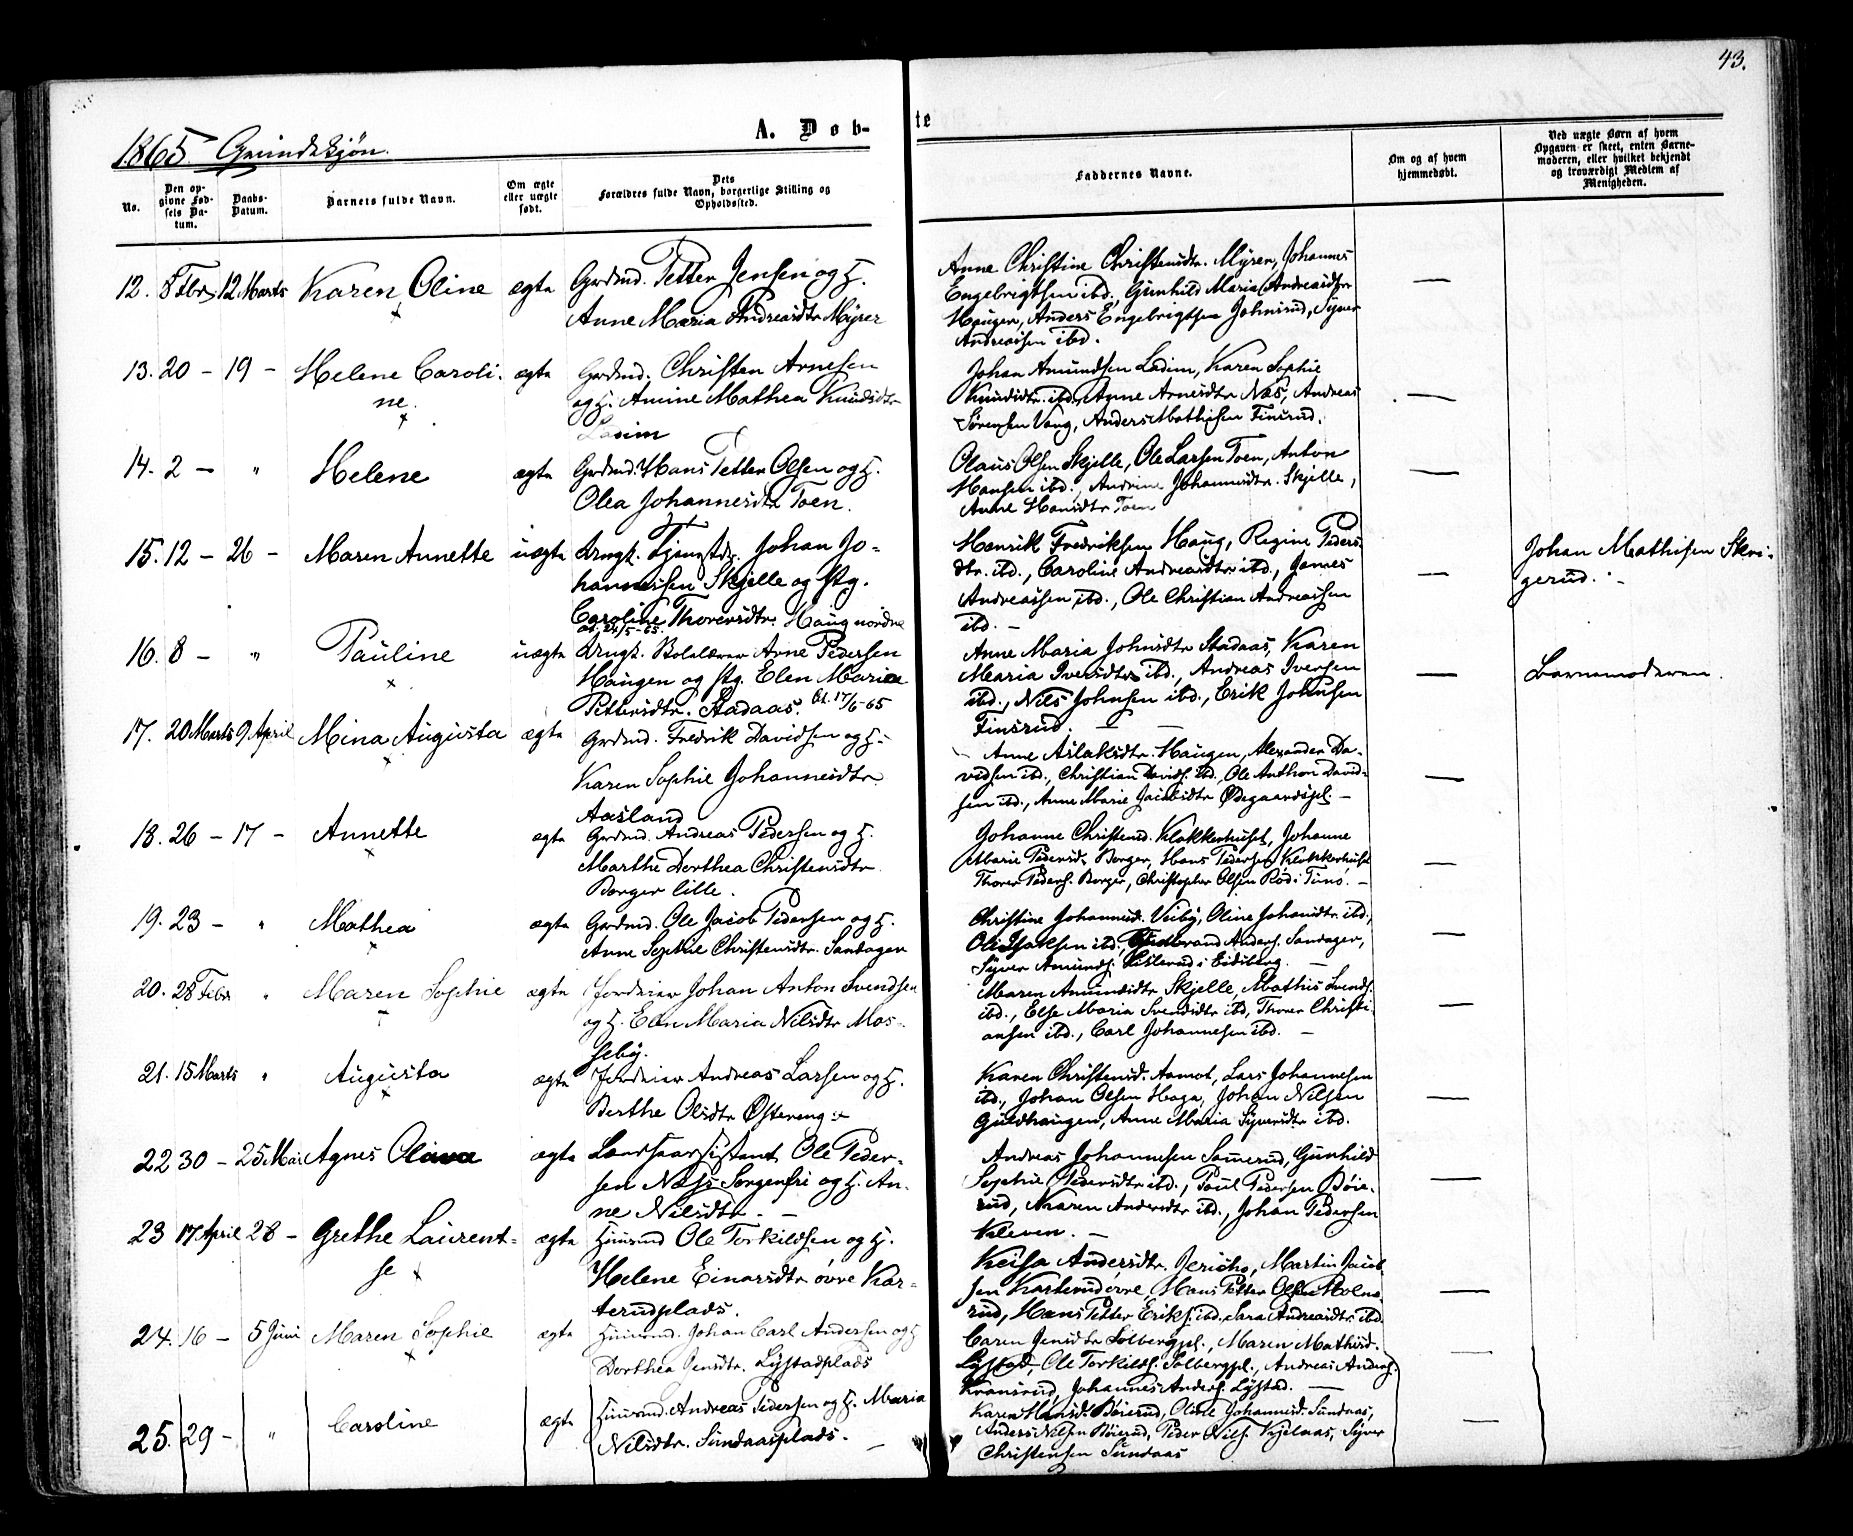 43.
1865. Qvindekjøn.
A. Døb-
te
No.
Den op-
givne Fød-
sels Da-
tum.
Daabs-
Datum.
Barnets fulde Navn.
Om ægte
eller uægte
født.
Dets
Forældres fulde Navn, borgerlige Stilling og
Opholdssted.
Faddernes Navne.
Om og af hvem
hjemmedøbt.
Ved uægte Børn af hvem
Opgaven er skeet, enten Barne-
moderen, eller hvilket bekjendt
og troværdigt Medlem af
Menigheden.
12. 8 Febr 12 Marts Karen Oline ægte Grdmd. Petter Jensen og H.
Anne Maria Andreasdtr Myrer
Anne Christine Christensdtr. Myrer, Johannes
Engebrigtsen ibd., Gunhild Maria Andreasdtr
Haugen, Anders Engebrigtsen Johnsrud, Syver
Andreassen ibd. —
13. 20 - 19 - Helene Caroli-
ne. ægte Grdmd. Christen Arnesen
og H. Amine Mathea Knudsdtr
Ladim
Johan Amundsen Ladim, Karen Sophie
Knudsdtr. ibd., Anne Arnesdtr Næs, Andreas
Sørensen Vang, Anders Mathisen Finsrud. —
14. 2 - " Helene ægte Grdmd. Hans Petter Olsen og H.
Olea Johannesdtr Toen.
Olaus Olsen Skjelle, Ole Larsen Toen, Anton
Hansen ibd., Andrine Johannesdtr. Skjelle,
Anne Hansdtr Toen —
15. 12 - 26 - Maren Annette uægte Ungk. Tjenestdr. Johan Jo-
hannessen Skjelle og Pig.
Caroline Thoresdtr. Haug nordre
Henrik Fredriksen Haug, Regine Peders-
dtr. ibd., Caroline Andreasdtr ibd., James
Andreassen ibd., Ole Christian Andreassen
ibd. — —
Johan Mathisen Skri-
gerud. —
16. 8 - " Pauline uægte Ungk. Arne Pedersen
Haugen og Pig. Elen Maria
Pettersdtr. Stadaas. 17/6-65
Anne Maria Johnsdtr Stadaas, Karen
Maria Iversdtr ibd., Andreas Iversen
ibd., Nils Johnsen ibd., Erik Johnsen
Finsrud. — —
Barnemoderen.
17. 20 Marts 9 April Mina Augusta ægte Grdmd. Fredrik Davidsen og H.
Karen Sophie Johannesdtr
Aasland
Anne Aslaksdtr. Haugen, Alexander Da-
vidsen ibd., Christian Davids. ibd., Ole Anthon David-
sen ibd., Anne Marie Jacobsdtr Ødegaardspl. — —
18. 26 - 17 - Annette ægte Grdmd. Andreas Pedersen og H.
Marthe Dorthea Christensdtr
Borger lille.
Johanne Christensd. Klokkerhuset, Johanne
Marie Pedersd. Borger, Hans Pedersen Klokkerhuset
Thorer Peders. Borger, Christopher Olsen Rød i — —
19. 23 - " Mathea ægte Grdmd. Ole Jacob Pedersen og H.
Anne Sophie Christensdtr. Sandager
Christine Johannesd. Veiby, Oline Johansdtr. ibd.,
Ole Isaksen ibd., Anders. Sandager,
Syver Amunds. i Eidsberg. — —
20. 28 Febr " Maren Sophie ægte Jordeier Johan Anton Svendsen
og H. Elen Maria Nilsdtr Mos-
seby.
Maren Amundsdtr Skjelle, Mathis Svends.
ibd., Else Maria Svendsdtr ibd, Thorer Christi-
ansen ibd., Carl Johannesen ibd. — —
21. 15 Marts " Augusta ægte Jordeier Andreas Larsen og H.
Berthe Olsdtr Østereng.
Karen Christensd. Aamot, Lars Johannesen
ibd., Johan Olsen Haga, Johan Nilsen
Guldhaugen, Anne Maria Syversdtr ibd. —
22 30 - 25 Mai Agnes Olava ægte Ole Peder-
sen Næss Sorgenfri og H. An-
ne Nilsdtr. —
Andreas Johannesen Sanerud, Gunhild
Sophie Pedersdtr ibd., Poul Pedersen Bøie-
rud, Karen Andersdtr ibd., Johan Pedersen
Kleven. — —
23 17 April 28 - Grethe Laurent-
se ægte Huusmd Ole Torkildsen og H.
Helene Einarsdtr øvre Kar-
terudplads.
Keisa Andersdtr. Jericho, Martin Jacob-
sen Karterud øvre, Hans Petter Olsen Holme-
rud, Hans Petter Eriks. ibd., Sara Andreasdtr ibd. —
24. 16 - 5 Juni Maren Sophie ægte Huusmd. Johan Carl Andersen og H
Dorthea Jensdtr. Lystadplads
Caren Jensdtr Solbergpl., Maren Mathisd.
Lystad, Ole Torkilds. Solbergpl., Andreas Anders.
Kransrud, Johannes Anders. Lystad. — —
25. 29 - " Caroline ægte Huusmd. Andreas Pedersen og H. Maria
Nilsdtr. Sundaasplads. —
Karen Hansd. Bøierud, Johannesd. Sundaas,
Anders Nilsen Bøierud, Peder Nils. , Syver
Christensen Sundaas —